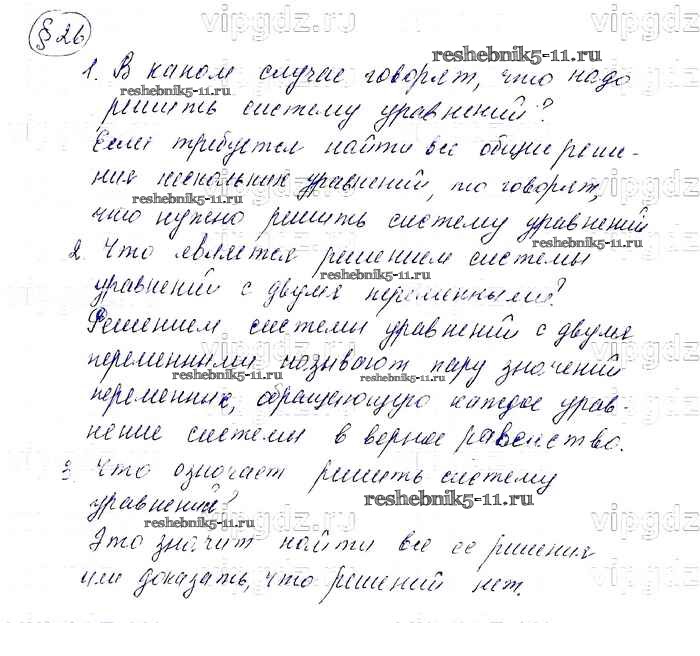 § 26
1. В каком случае говорят, что надо
решить систему уравнений?
Если требуется найти все общие реше-
ния нескольких уравнений, то говорят,
что нужно решить систему уравнений
2. Что является решением системы
уравнений с двумя переменными?
Решением системы уравнений с двумя
переменными называют пару значений
переменных, обращающую каждое урав-
нение системы в верное равенство.
3. Что означает решить систему
уравнений?
Это значит найти все ее решения
или доказать, что решений нет.
vipgdz.ru
reshebnik5-11.ru